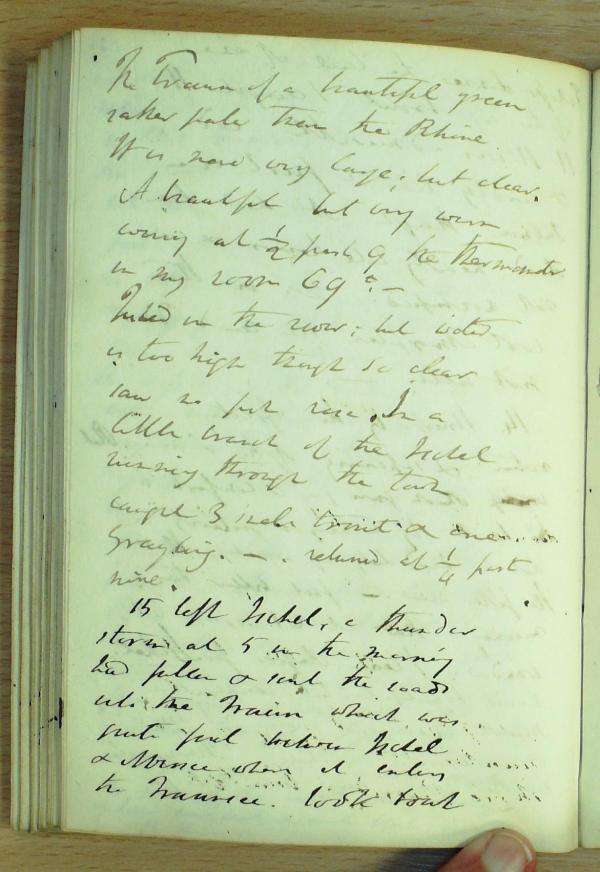 The Traun of a beautiful green
rather paler than the Rhine.
It is now very large; but clear.
A beautiful but very warm
evening at ½ past 9 the thermometer
in my room 69°. –
Fished in the river; but water
is too high though so clear
saw no fish rise. In a
little branch of the Ischel
running through the town
caught 3 trout & one
Grayling. – . returned at ¼ past
nine.
15 left Ischel, a thunder
storm at 5 in the morning
had fallen & sent the roads
into the Traun which was
quite foul between Ischel
& where it enters
the Traunsee. took boat